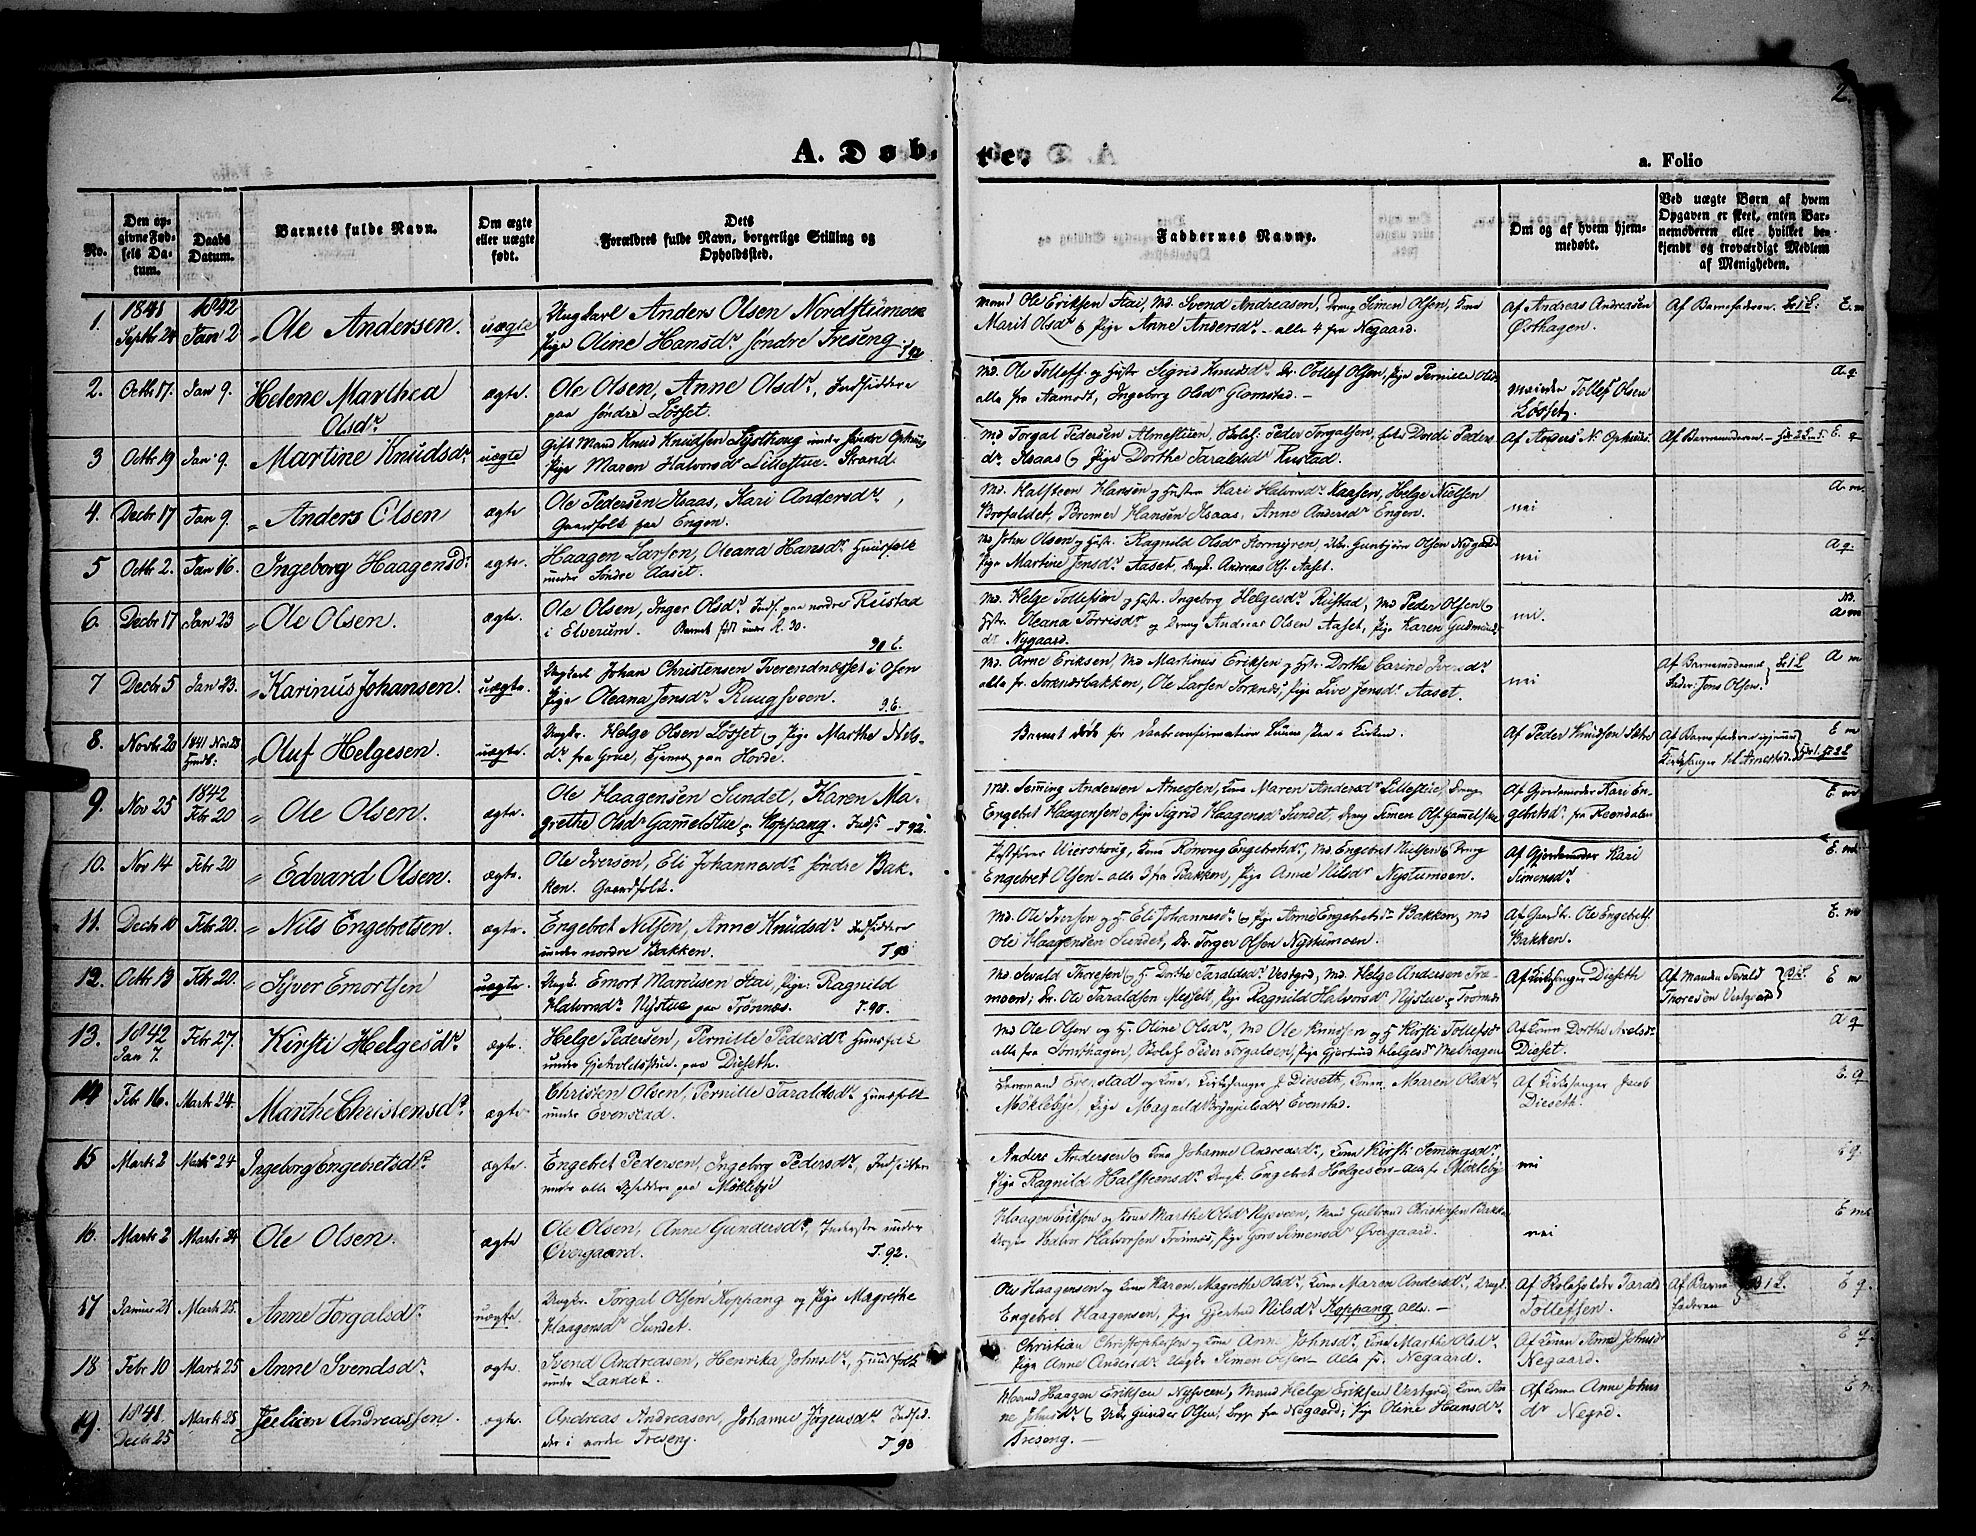 2.
A. Døb.
te.
a. Folio
No.
Den op-
givne Fød-
sels Da-
tum.
Daabs
Datum.
Barnets fulde Navn.
Om ægte
eller uægte
født.
Dets
Forældres fulde Navn, borgerlige Stilling og
Opholdssted.
Faddernes Navne.
Om og af hvem hjem-
medøbt.
Ved uægte Børn af hvem
Opgaven er skeet, enten Bar-
nemoderen eller hvilket be-
kjendt og troværdigt Medlem
af Menigheden.
1. 1841 Septbr 24 1842 Jan 2 Ole Andersen. uægte
Ungkarl Anders Olsen Nordstumoen
Pige Oline Hansdr søndre Treseng. T 92
Mand Ole Eriksen Stai, Md. Svend Andreasen, Dreng Simen Olsen, Kone
Marit Olsdr og Pige Anne Andersdr - alle 4 fra Negaard.
Af Andreas Andreasen
Østhagen.
Af Barnefaderen. E. m
2. Octbr 17. Jan 9. Helene Marthea
Olsdr ægte.
Ole Olsen, Anne Olsdr, Indsiddere
paa søndre Løsset.
Md. Ole Tollefs. og Hustr Sigrid Knudsdr. Dr. Tollef Olsen, Pige Pernille Olsdr
alle fra Aamodt, Ingeborg Olsdr Glomstad. -
Tollef Olsen
Løsset.
A q.
3 Octbr 19 Jan 9. Martine Knudsdr uægte
Gift Mand Knud Knudsen under søndre Ophuus
Pige Maren Halvorsdr Lillestue Strand
Md Torgal Pedersen Almestuen, Peder Torgalsen, Dordi Peders
dr. Aaas og Pige Dorthe Taraldsdr Rustad.
Af Anders N. Ophuus.
Af Barnemoderen. E. q
4. Decbr 17 Jan 9. Anders Olsen ægte
Ole Pedersen Aaas, Kari Andersdr,
Gaardfolk paa Engen.
Md. Halsteen Hansen og Hustru Kari Halvorsdr Kaasen, Helge Nielsen
Brofaldet, Bremer Hansen Aaas, Anne Andersdr Engen.
nei
A m
5 Octbr 2. Jan 16. Ingeborg Haagensdr ægte.
Haagen Larsen, Oleana Hansdr Huusfolk
under Søndre Aaset.
Md John Olsen og Hustr. Ragnild Olsdr Stormyren, Gunbjørn Olsen Nygaard
Pige Martine Jensdr Aaset, Ungk. Andreas Ols. Aaset.
nei
A q.
6. Decbr 17 Jan 23 Ole Olsen. ægte.
Ole Olsen, Inger Olsdr Inds. paa nordre Rustad
i Elverum. Barnet født under A. 30.
Md. Helge Tollefsen og Hustr. Ingeborg Helgesdr Rustad, Md Peder Olsen og
Hustr. Oleana Torrisdr og Dreng Andreas Olsen Aaset, Pige Karen Gudmunds
dr Nygaard.
nei.
A m
7 Decbr 5 Jan 23. Karinus Johansen. uægte.
Ungkarl Johan Christensen Tverendnæsset i Osen
Pige Oleana Jensdr Ruugsveen.
Md. Arne Eriksen, Md Martinus Eriksen og Hustr. Dorthe Carine Iversdr
alle fr. Sorknæsbakken, Ole Larsen Sorknæs, Pige Live Jensdr Aaset.
nei
Af Barnemoderens
Fader: Jens Olsen.
A m
8. Novbr 20 1841 Nov 28 Oluf Helgesen. uægte.
Ungkr. Helge Olsen Løsset og Pige Marthe Nils-
dr. fra Grue, Tjener paa Hovde.
Barnet døde før Daabsconfirmation kunne skee i Kirken.
Af Peder Knudsen Sætre
Af Barnefaderen igjennem
Kirkesanger
E m
9. Nov 25 1842 Febr 20 Ole Olsen. ægte.
Ole Haagensen Sundet, Karen Ma-
grethe Olsdr Gammelstue, Koppang. Inds. T 92.
Md. Semming Andersen Arnessen, Kone Maren Andersdr Lillestue, Dreng
Engebret Haagensen og Pige Sigrid Haagensdr Sundet, Dreng Simen Ols. Gamelstue
Af Gjordemoder Kari En-
gebretsdr. fra Reendalen
E. m
10. Nov 14 Febr 20 Edvard Olsen. ægte.
Ole Iversen, Eli Johannesdr søndre Bak-
ken. Gaardfolk.
Wiershoug, Kone Rønnoug Engebretsdr, Md Engebret Nielsen og Dreng
Engebret Olsen - alle 3 fra Bakken, Pige Anne Nilsdr Nystumoen.
Af Gjordemoder Kari
Simensdr.
E. m
11. Decbr 10 Febr 20. Nils Engebretsen. ægte.
Engebret Nilsen, Anne Knudsdr Indsiddere
under nordre Bakken. T 93
Md. Ole Iversen og H. Eli Johannesdr og Pige Anne Engebretsdr Bakken, Md
Ole Haagensen Sundet, Dr. Torger Olsen Nystumoen.
Af Gaardk. Ole Engebrets.
Bakken.
E. m
12. Octbr 13 Febr 20. Syver Emortsen uægte.
Ungk. Emort Marcusen Stai, Pige Ragnild
Halvorsdr Nystue paa Trønnæs. T. 90.
Md. Sevald Thoresen og H Dorthe Taraldsdr Vestgrd, Md. Helge Andersen Træ-
moen; Dr. Ole Taraldsen Messelt, Pige Ragnild Halvorsdr Nystue, Trønnæs
Af Kirkesanger Dieseth
Af Manden Sevald
Thoresen Vestgaard
E m
13. 1842 Jan 7. Febr 27. Kirsti Helgesdr. ægte.
Helge Pedersen, Pernille Pedersdr Huusfolk
under Gjeholdsstue paa Dieseth.
Md Ole Olsen og H. Oline Olsdr, Md Ole Knudsen og H Kirsti Tollefsdr
alle fra Tomthagen, Peder Torgalsen, Pige Gjertrud Helgesdr Melhagen
Af Konen Dorthe Axelsdr
Dieset.
A q
14 Febr 16. Marts 24. Marthe Christensdr. ægte
Christen Olsen, Pernille Taraldsdr Huusfolk
under Evenstad.
Lensmand Evenstad og Kone, Kirkesanger J Dieseth, Konen Maren Olsdr
Møklebye, Pige Magnild Brynjulsdr Evenstad.
Af Kirkesanger Jacob
Dieseth.
E. q
15 Marts 2 Marts 24 Ingeborg Engebretsdr. ægte.
Engebret Pedersen, Ingeborg Pedersdr, Indsiddere
under alle Opsiddere paa Møklebye
Anders Andersen og Kone Johanne Andreasdr, Kone Kirsti Semingsdr,
Pige Ragnild Halsteensdr. Ungk. Engebret Helgesen - alle fr Møklebye
nei
E q.
16. Marts 2 Marts 24 Ole Olsen. ægte
Ole Olsen, Anne Gundersdr, Inderster under
Øvergaard. T. 92.
Haagen Eriksen og Kone Marthe Olsdr Nysveen, Mand Gulbrand Christensen Bakken
Ungkr Halvor Halvorsen Trønnæs, Pige Goro Simensdr Øvergaard.
nei
E m
17 Januar 21 Marts 25. Anne Torgalsdr. uægte.
Ungkr. Torgal Olsen Koppang og Pige Magrethe
Haagensdr Sundet.
Ole Haagensen og Kone Karen Magrethe Olsdr, Kone Maren Andersdr, Ungk.
Engebret Haagensen, Pige Gjertrud Nilsdr Koppang alle. -
Af Boleholder Tarald
Tollefsen.
Af Barne
faderen
E q.
18 Febr 10 Marts 25 Anne Svendsdr. ægte.
Svend Andreasen, Henrika Johnsdr, Huusfolk
under Landet.
Christian Christophersen og Kone Anne Johnsdr, Kone Marthe Olsdr.
Pige Anne Andersdr Ungk. Simen Olsen - alle fr. Negaard.
Af Konen Anne Johnsdr
Negaard.
E q.
19. 1841 Decbr 25 Marts 28 Jeelian Andreassen. ægte.
Andreas Andreasen, Johanne Jørgensdr Indsid.
der i nordre Treseng. T 93
Mand Haagen Eriksen Nysveen, Mand Helge Eriksen Vestgrd, Kone An-
ne Johnsdr og Ungkr Gunder Olsen, begge fra Negaard; Pige Oline Hansdr.
Treseng. -
Af Konen Anne Johns
dr Negrd.
E m